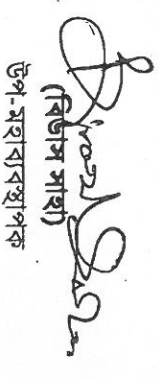 (বিভাস সাহা)
উপ-মহাব্যবস্থাপক